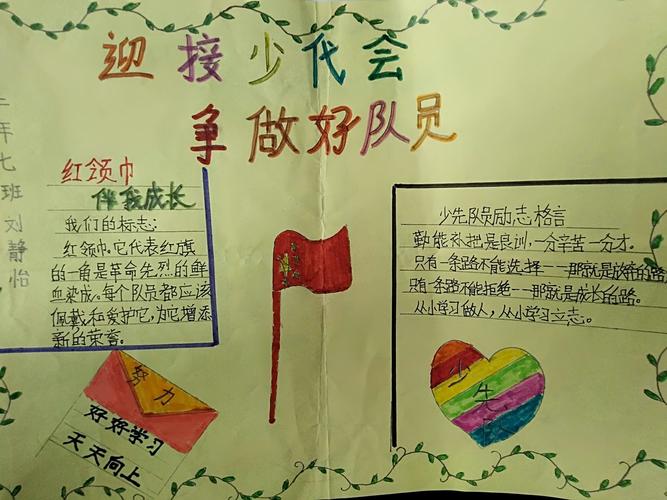 迎接少代会
争做好队员
二年七班刘静怡
红领巾
伴我成长
我们的标志:
红领巾,它代表红旗
的一角是革命先烈的鲜
血染成。每个队员都应该
佩戴和爱护它,为它增添
新的荣誉。
少先队员励志格言
勤能补拙是良训,一分辛苦一分才。
只有一条路不能选择——那就是放弃的路
只有一条路不能拒绝——那就是成长的路。
从小学习做人,从小学习立志。
努力
好好学习
天天向上
少先